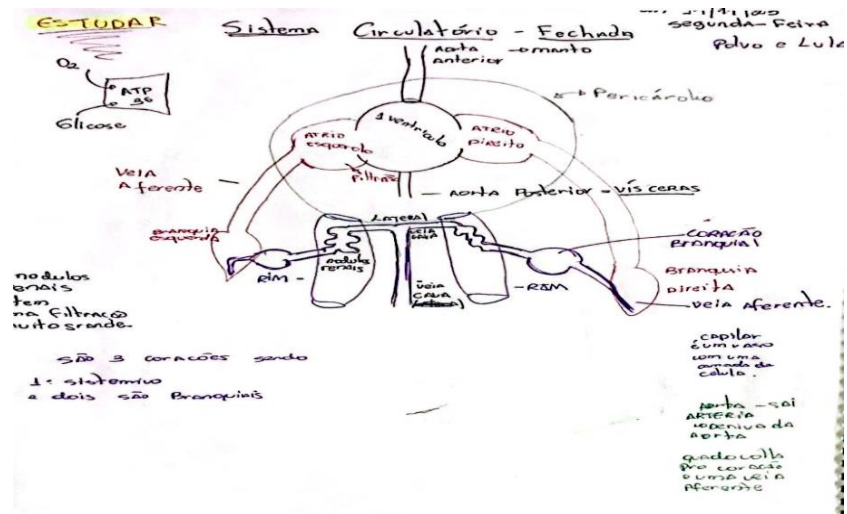 ESTUDAR
Sistema Circulatório - Fechado
segunda-Feira
Polvo e Lula
O2
ATP
36
Glicose
Aorta → manto
Anterior
→ Pericárdio
1 ventrículo
ATRIO
esquerdo
ATRIO
Direito
Filtrão
VeIA
Aferente
Aorta Posterior - VÍSCERAS
BRANQUIA
esquerda
LATERAL
VEIA
CAVA
nodulos
renais
RIM
VEIA
CAVA
RIM
CORAÇÃO
BRANQUIAL
BRANQUIA
Direita
veia Aferente.
nodulos
enais
tem
na Filtração
uito grande.
são 3 corações sendo
1: sistemico
e dois são Branquiais
capilar
é um vaso
com uma
camada de
celula.
Aorta - SAI
ARTERIA
Aorta
pro coração
é uma veia
Aferente